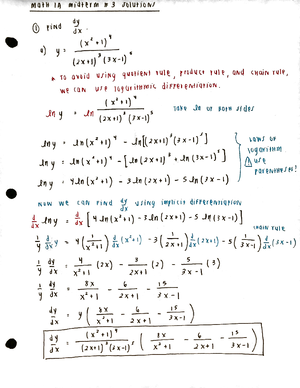 Math 1A Midterm #3 Solutions
① Find dy/dx.
a) y = (x²+1)⁴ / (2x+1)³(3x-1)⁵
* to avoid using quotient rule, product rule, and chain rule,
we can use logarithmic differentiation.
ln y = ln (x²+1)⁴ / (2x+1)³(3x-1)⁵ take ln of both sides
ln y = ln(x²+1)⁴ - ln[(2x+1)³(3x-1)⁵]
ln y = ln(x²+1)⁴ - [ln(2x+1)³ + ln(3x-1)⁵]
ln y = 4 ln(x²+1) - 3 ln(2x+1) - 5 ln(3x-1)
laws of
logarithm
use
parentheses!
now we can find dy/dx using implicit differentiation
d/dx ln y = d/dx [4 ln(x²+1) - 3 ln(2x+1) - 5 ln(3x-1)]
chain rule
1/y d/dx y = 4(1/x²+1) d/dx (x²+1) - 3(1/2x+1) d/dx (2x+1) - 5(1/3x-1) d/dx (3x-1)
1/y dy/dx = 4/x²+1 (2x) - 3/2x+1 (2) - 5/3x-1 (3)
1/y dy/dx = 8x/x²+1 - 6/2x+1 - 15/3x-1
dy/dx = y (8x/x²+1 - 6/2x+1 - 15/3x-1)
dy/dx = (x²+1)⁴ / (2x+1)³(3x-1)⁵ (8x/x²+1 - 6/2x+1 - 15/3x-1)